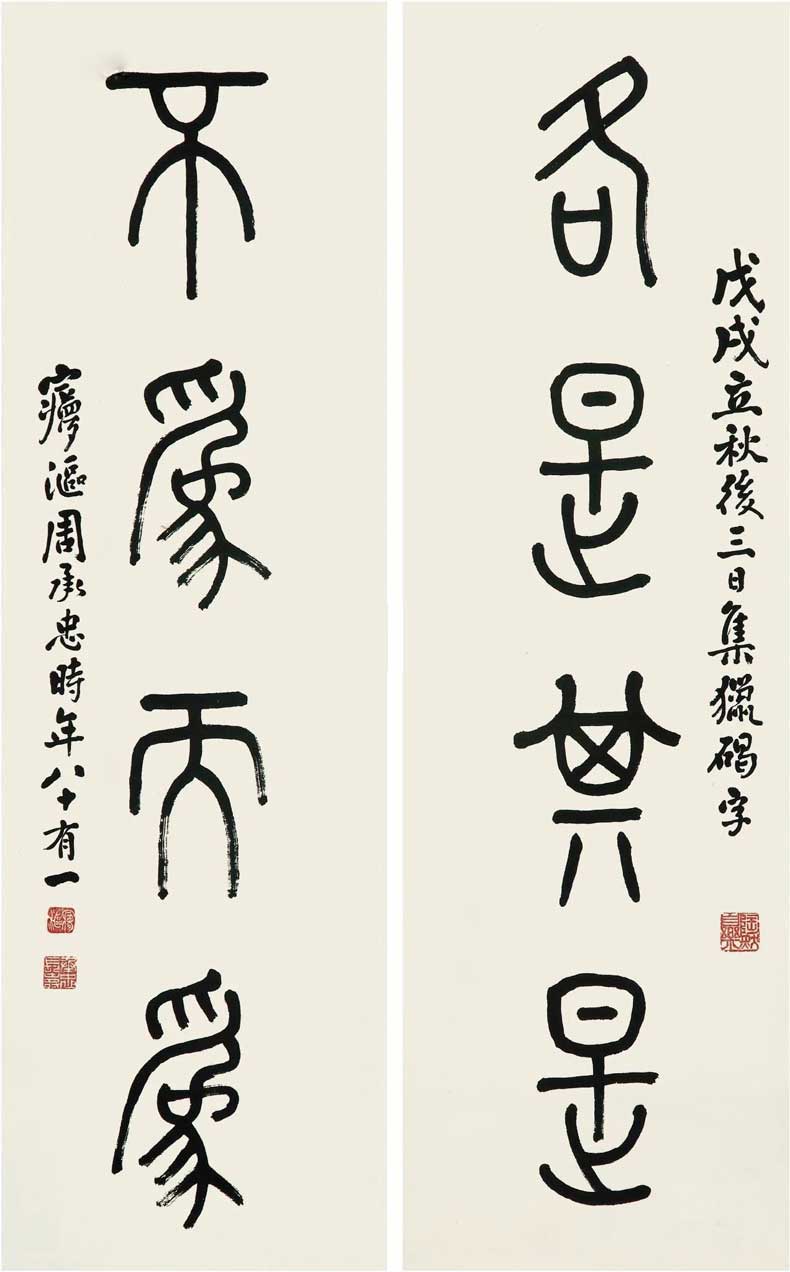 各是其是
戊戌立秋後三日集獵碣字
不爲而爲
㝱漚周承忠時年八十有一